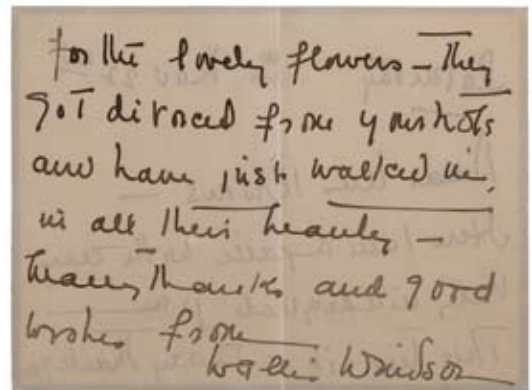 for the lovely flowers – They
got divorced from your hats
and have just walked in,
in all their beauty –
Many Thanks and good
wishes from
Wallis Windsor